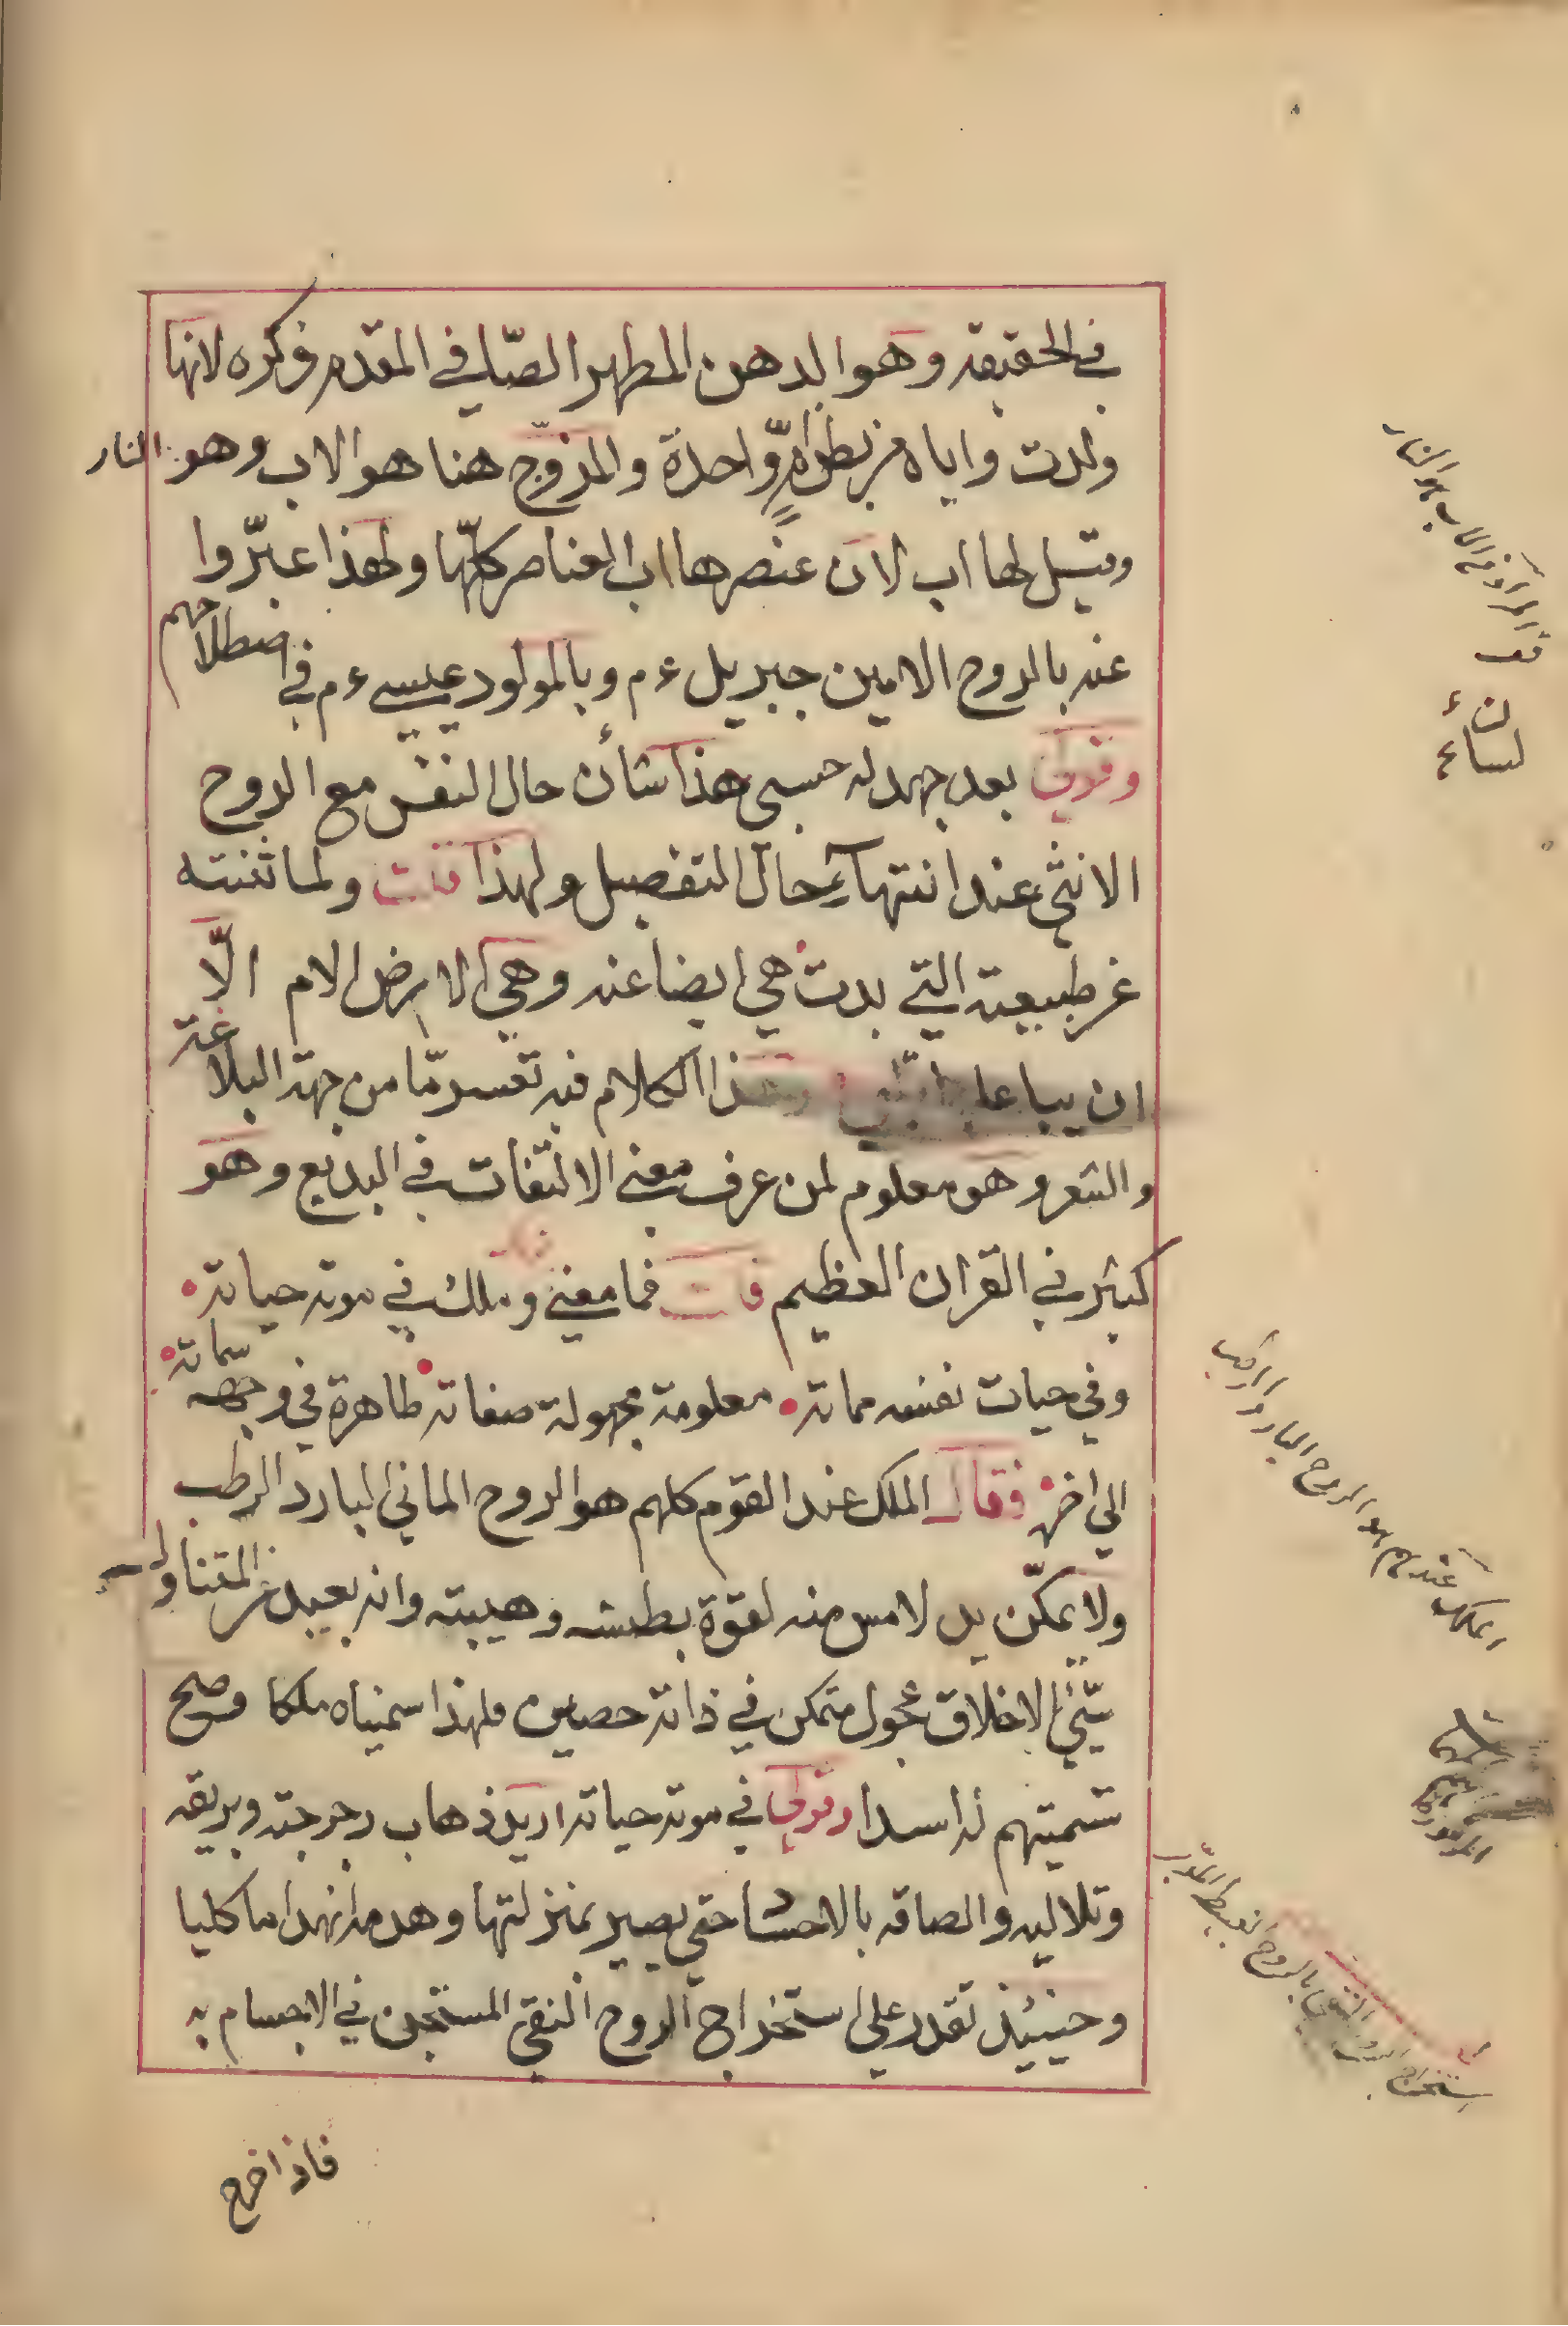 في الحقيقة وهو الدهن المطهر الصافي المقدم ذكره لانها
ولدت واياه من بطن ام واحدة والمزوّج هنا هو الاب وهو النار
وقيل لها اب لان عنصرها اب العناصر كلّها ولهذا عبّروا
عنه بالروح الامين جبريل ءم وبالمولود عيسى ءم في اصطلاحهم
وقولي بعد جهد له حسبي هذا شأن حال النفس مع الروح
الانثى عند انتهآء حال التفصيل ولهذا قلت ولما ثنته
عن طبيعته التي بدت هي ايضا عنه وهي الارض الام الّا
ان وهذا الكلام فيه تعسر ما من جهة البلاغة
والشعر وهو معلوم لمن عرف معنى الالتفات في البديع وهو
كثير في القران العظيم قلت فما معنى وملك في موته حياته
وفي حيات نفسه مماته معلومة مجهولة صفاته ظاهرة في وجهه سماته
الى اخره فقال الملك عند القوم كلهم هو الروح المائي البارد الرطب
ولا يمكّن يد لامس منه لقوة بطشه وهيبته وانه بعيد عن المتناول
سيّئ الاخلاق عجول متمكن في ذاته حصين فلهذا سميناه ملكا وصح
تسميتهم له اسدا وقولي في موته حياته اريد ذهاب رجرجته وبريقه
وتلاليه والصاقه بالاجساد حتى يصير بمنزلتها وهدمه انهداما كليا
وحينئذ تقدر على استخراج الروح النقي المستجن في الاجسام به
فاذا خرج
قف المراد في الاب هو النار
الملك عندهم هو الروح البارد الرطب